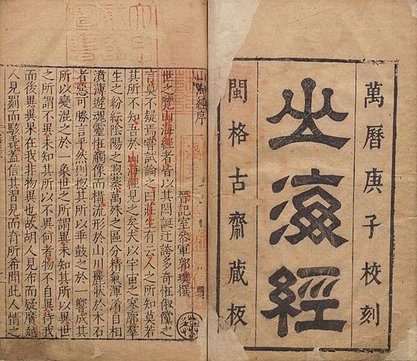 萬曆庚子校刻
山海經
閩格古齋藏板
山海經序
晉記室參軍郭璞撰
世之覽山海經者皆以其閎誕迂誇多奇怪俶儻之
言莫不疑焉嘗試論之曰莊生有云人之所知莫若
其所不知吾於山海經見之矣夫以宇宙之寥廓羣
生之紛紜陰陽之煦蒸萬殊之區分精氣渾淆自相
濆薄遊魂靈怪觸像而構流形於山川麗狀於木石
者惡可勝言乎然則總其所以乖鼓之於一響成其
所以變混之於一象世之所謂異未知其所以異世
之所謂不異未知其所以不異何者物不自異待我
而後異異果在我非物異也故胡人見布而疑黂越
人見罽而駭毳蓋信其習見而奇所希聞此人情之